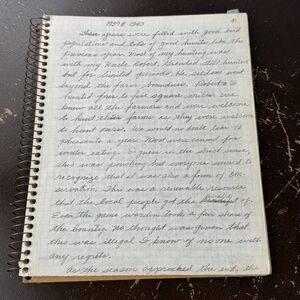 1939 & 1940
These years were filled with good bird
populations and lots of good hunts like the
previous year. Most of my hunting was
with my Uncle Robert. Grandad still hunted
but for limited periods. He seldom went
beyond the farm boundries. Robert & I
hunted from to five square miles. We
knew all the farmers and were welcome
to hunt their farms as they were welcome
to hunt ours. We would no
pheasants a year. Food was canned for
winter eating. I guess in the strict sense,
this was poaching but everyone seemed to
recognize that it was also a form of con-
servation. This was a renewable resource
that the local people got the of.
Even the game wardin took a fair share of
the bounty. No thought was given that
this was illegal. I know of no one with
any regrets.
As the season approched the end, the